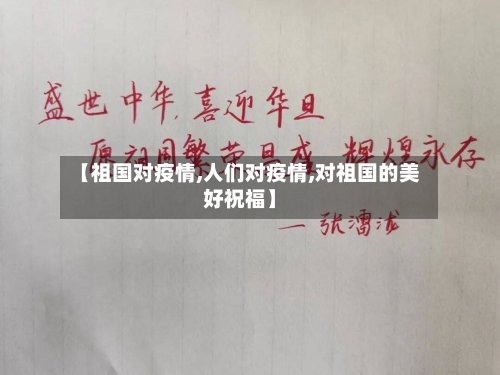 盛世中华,喜迎华旦
愿祖国繁荣昌盛 辉煌永存
【祖国对疫情,人们对疫情,对祖国的美
好祝福】
— 张